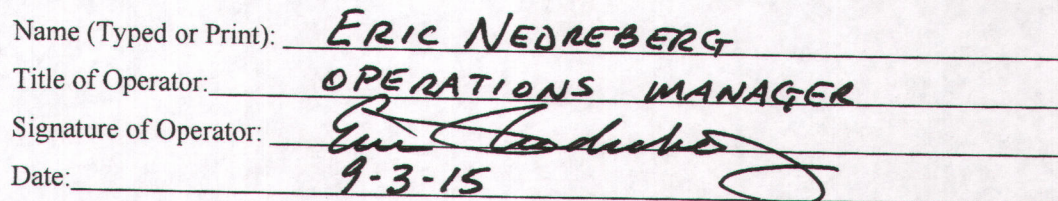 Name (Typed or Print): ERIC NEDREBERG
Title of Operator: OPERATIONS MANAGER
Signature of Operator:
Date: 9-3-15